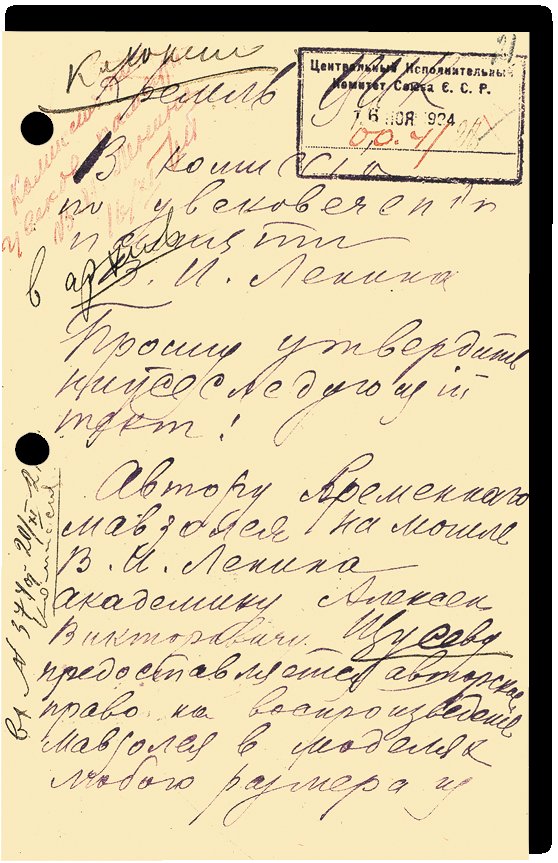 Кремль ЦИК
Центральный Исполнительный
Комитет Союза С. С. Р.
16 НОЯ 1924
В комиссию
по увековечению
памяти
В. И. Ленина
в архив
Прошу утвердить
нижеследующий
текст!
Автору временнаго
мавзолея на могиле
В. И. Ленина
академику Алексею
Викторовичу Щусеву
предоставляется авторское
право на воспроизведение
мавзолея в моделях
любого размера и